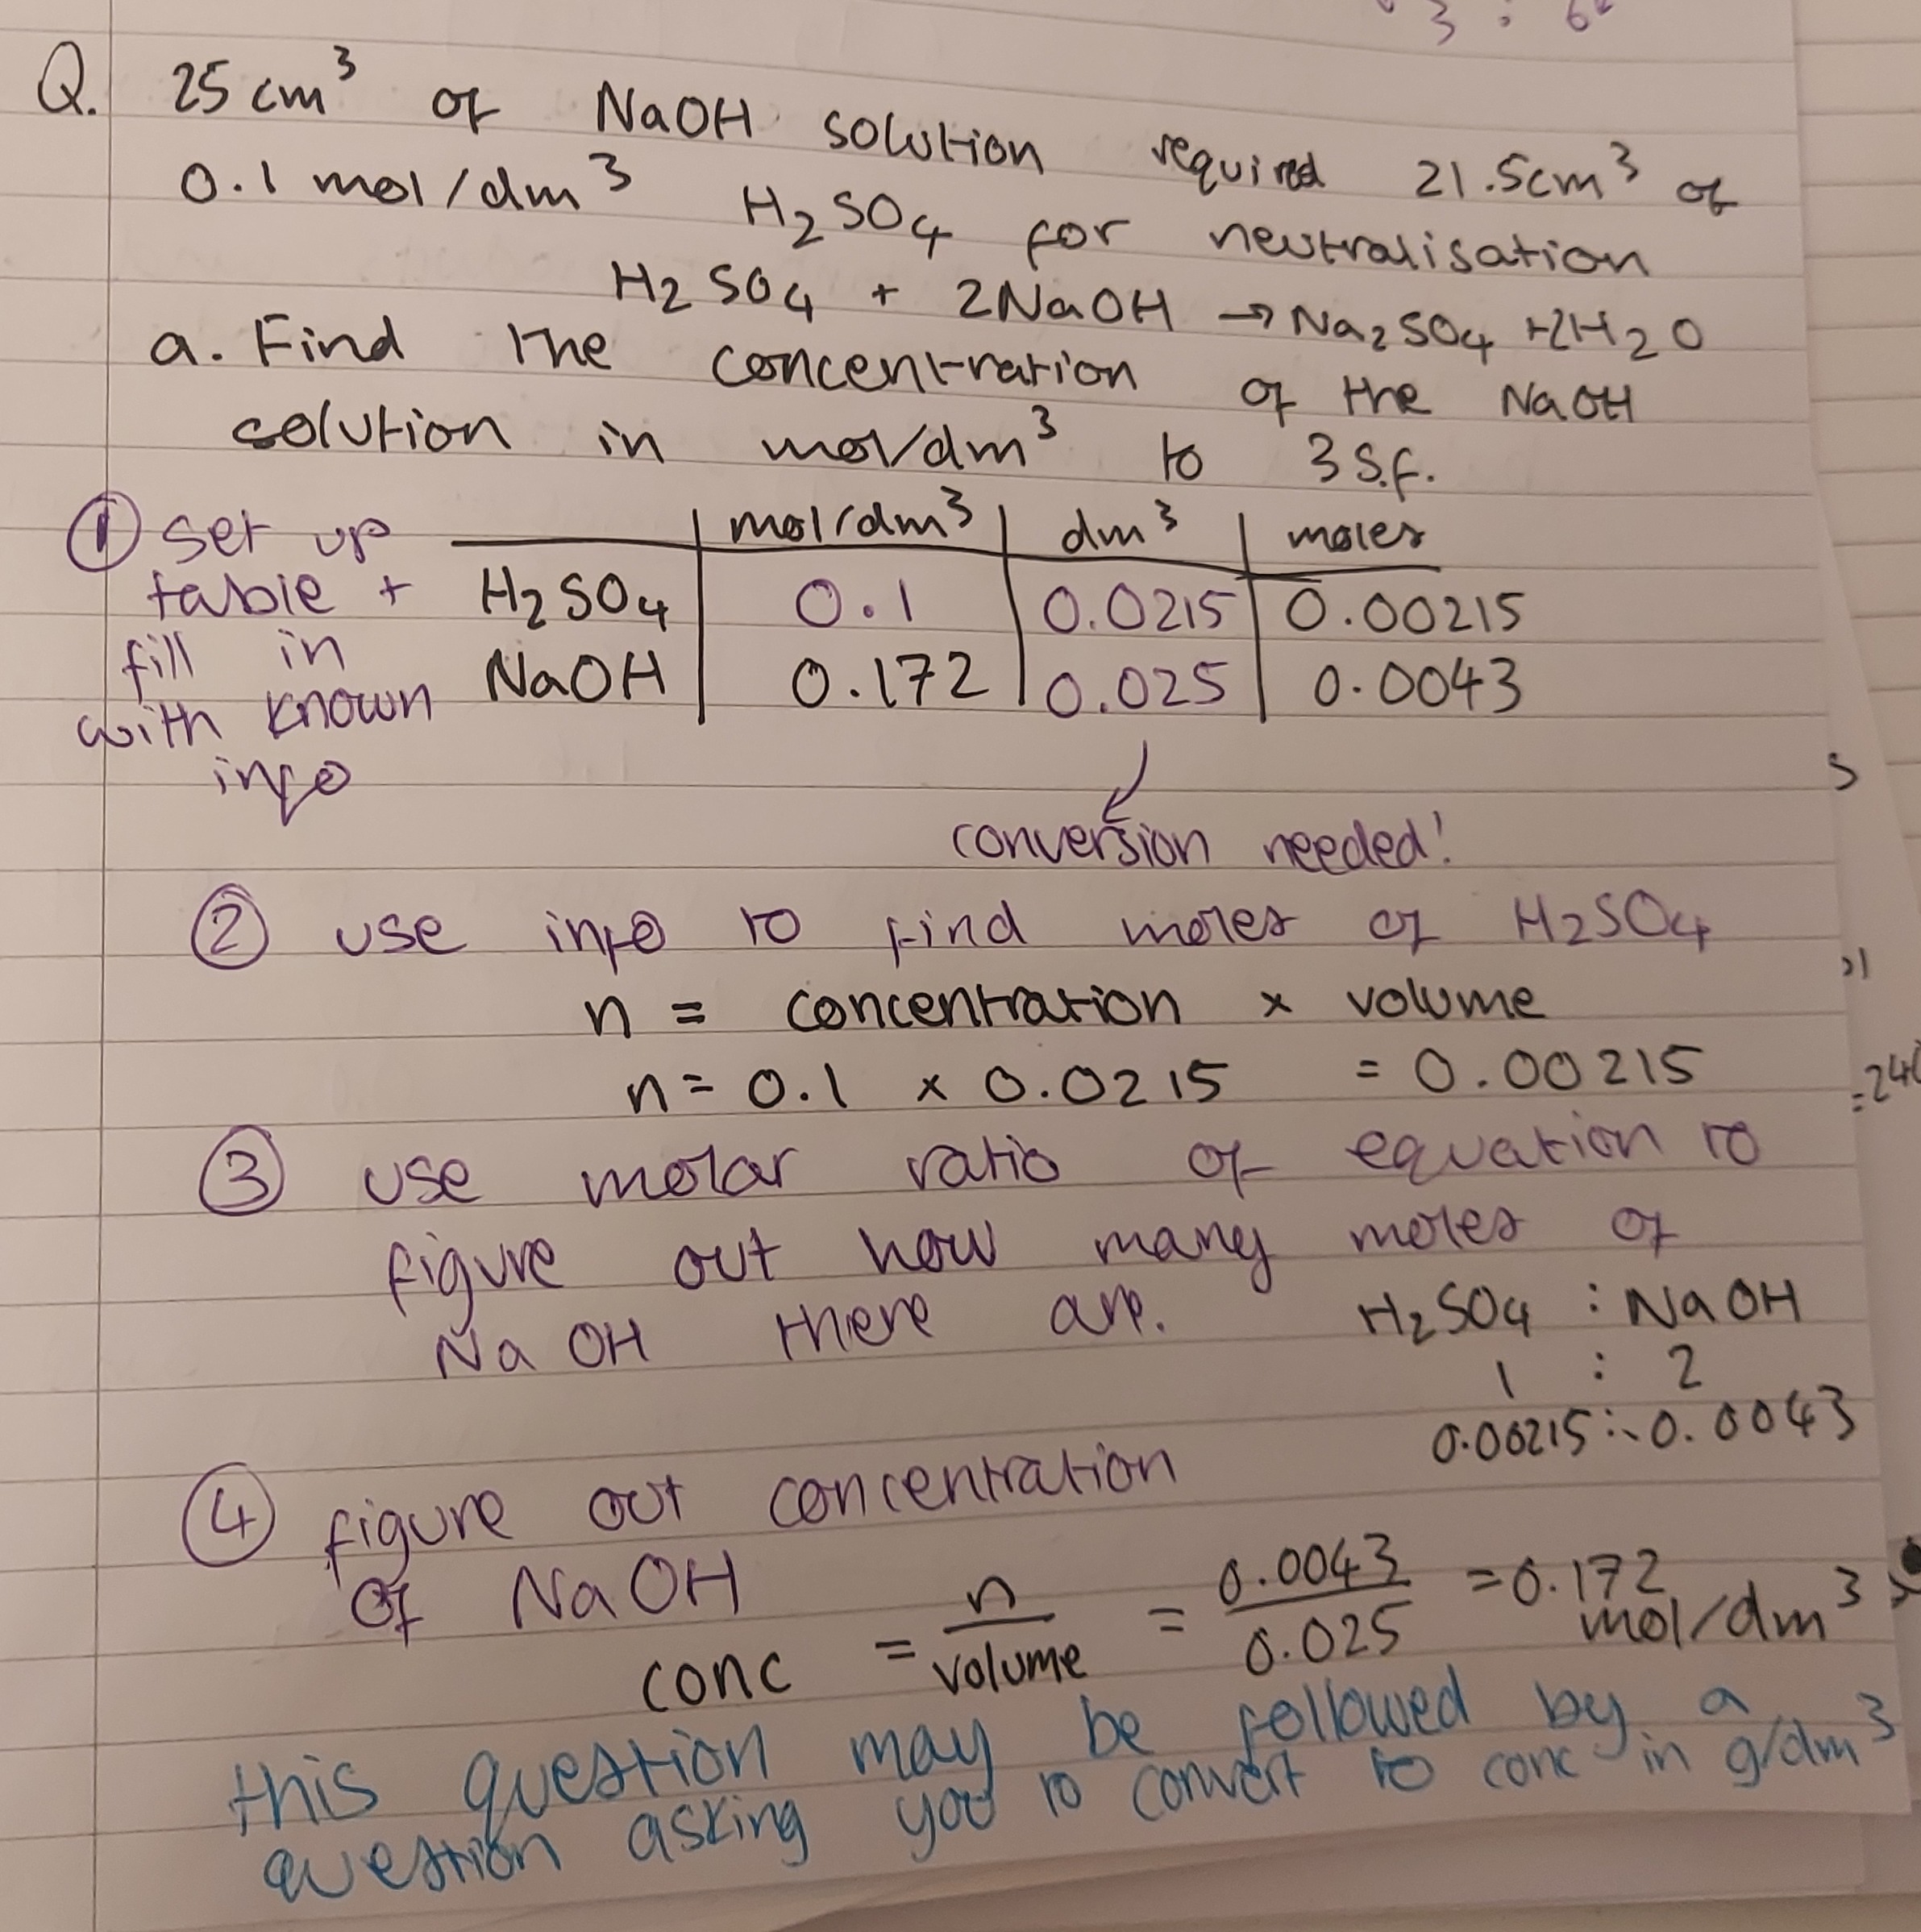 3 : 6
Q. 25 cm³ of NaOH solution required 21.5cm³ of
0.1 mol/dm³ H₂SO₄ for neutralisation
H₂SO₄ + 2NaOH → Na₂SO₄ + 2H₂O
a. Find the concentration of the NaOH
solution in mol/dm³ to 3 s.f.
① set up
table +
fill in
with known
info
mol/dm³ | dm³ | moles
H₂SO₄ | 0.1 | 0.0215 | 0.00215
NaOH | 0.172 | 0.025 | 0.0043
conversion needed!
② use info to find moles of H₂SO₄
n = concentration × volume
n = 0.1 × 0.0215 = 0.00215
③ use molar ratio of equation to
figure out how many moles of
NaOH there are.
H₂SO₄ : NaOH
1 : 2
0.00215 : 0.0043
④ figure out concentration
of NaOH
conc = n/volume = 0.0043/0.025 = 0.172 mol/dm³
this question may be followed by a
question asking you to convert to conc in g/dm³